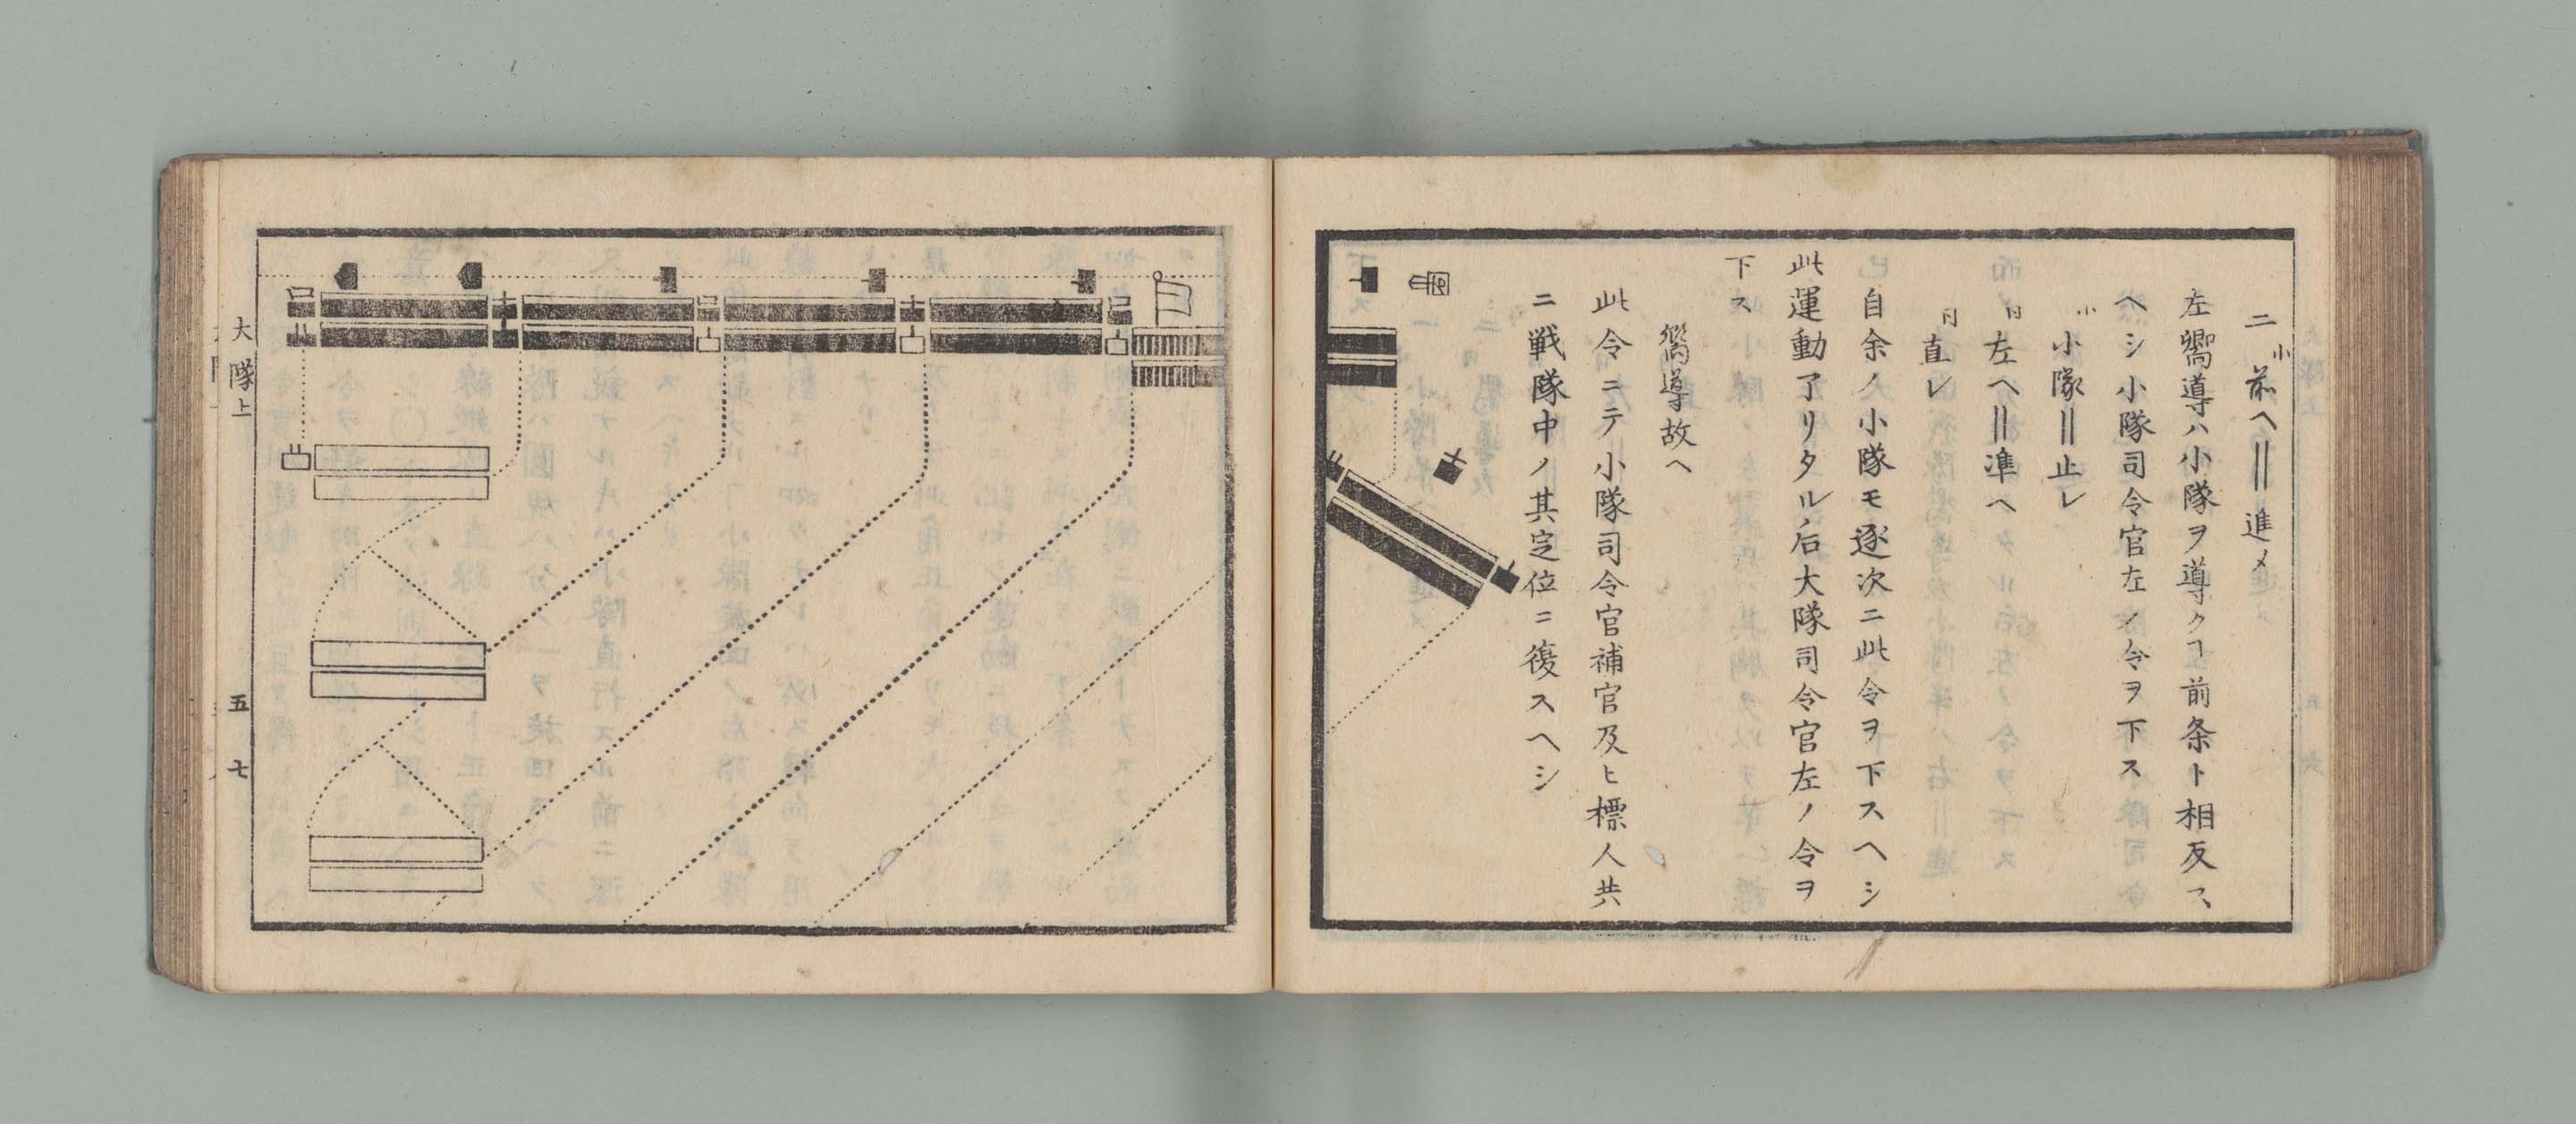 二 小 前ヘ‖進メ
左嚮導ハ小隊ヲ導クヿ前条ト相反ス
ヘシ小隊司令官左ノ令ヲ下ス
小 小隊‖止レ
同 左ヘ‖準ヘ
同 直レ
自余ノ小隊モ逐次ニ此令ヲ下スヘシ
此運動了リタルノ后大隊司令官左ノ令ヲ
下ス
嚮導故ヘ
此令ニテ小隊司令官補官及ヒ標人共
ニ戦隊中ノ其定位ニ復スヘシ
大隊上
五七